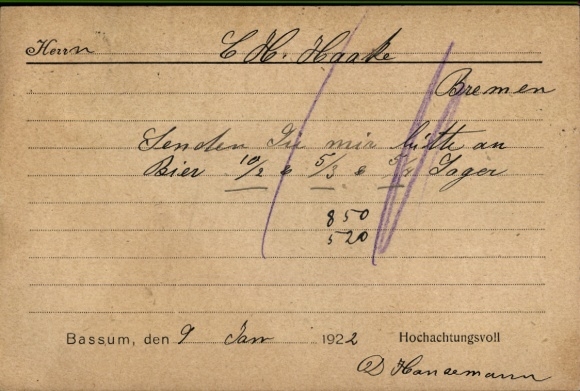 Herrn C H. Haake
Bremen
Senden Sie mir bitte an
Bier 10/2 & 5/3 & 5/4 Lager
850
520
Bassum, den 9 Jan 1922 Hochachtungsvoll
D Hansemann